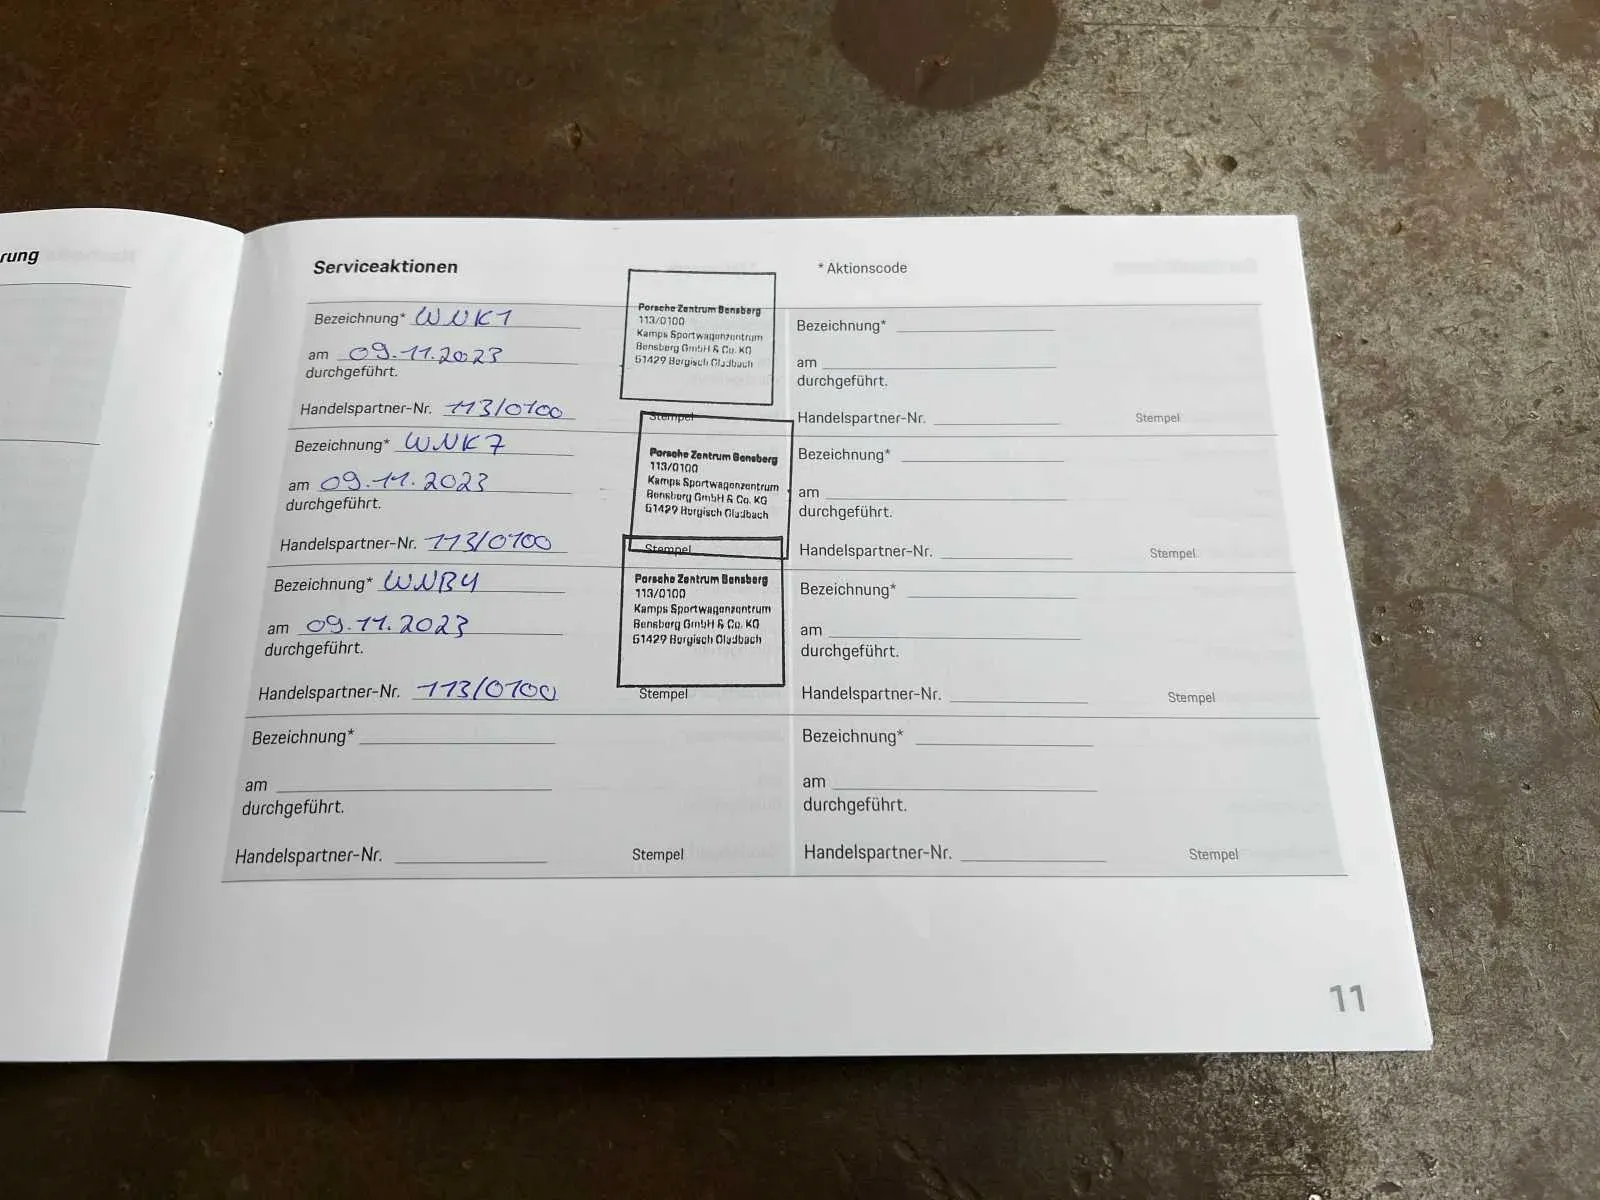 rung
Serviceaktionen
* Aktionscode
Bezeichnung* WNK1
am 09.11.2023
durchgeführt.
Handelspartner-Nr. 113/0100
Porsche Zentrum Bensberg
113/0100
Kamps Sportwagenzentrum
Bensberg GmbH & Co. KG
51429 Bergisch Gladbach
Stempel
Bezeichnung* WNK7
am 09.11.2023
durchgeführt.
Handelspartner-Nr. 113/0100
Porsche Zentrum Bensberg
113/0100
Kamps Sportwagenzentrum
Bensberg GmbH & Co. KG
51429 Bergisch Gladbach
Stempel
Bezeichnung* WNB4
am 09.11.2023
durchgeführt.
Handelspartner-Nr. 113/0100
Porsche Zentrum Bensberg
113/0100
Kamps Sportwagenzentrum
Bensberg GmbH & Co. KG
51429 Bergisch Gladbach
Stempel
Bezeichnung*
am
durchgeführt.
Handelspartner-Nr. Stempel
Bezeichnung*
am
durchgeführt.
Handelspartner-Nr. Stempel
Bezeichnung*
am
durchgeführt.
Handelspartner-Nr. Stempel
Bezeichnung*
am
durchgeführt.
Handelspartner-Nr. Stempel
Bezeichnung*
am
durchgeführt.
Handelspartner-Nr. Stempel
11